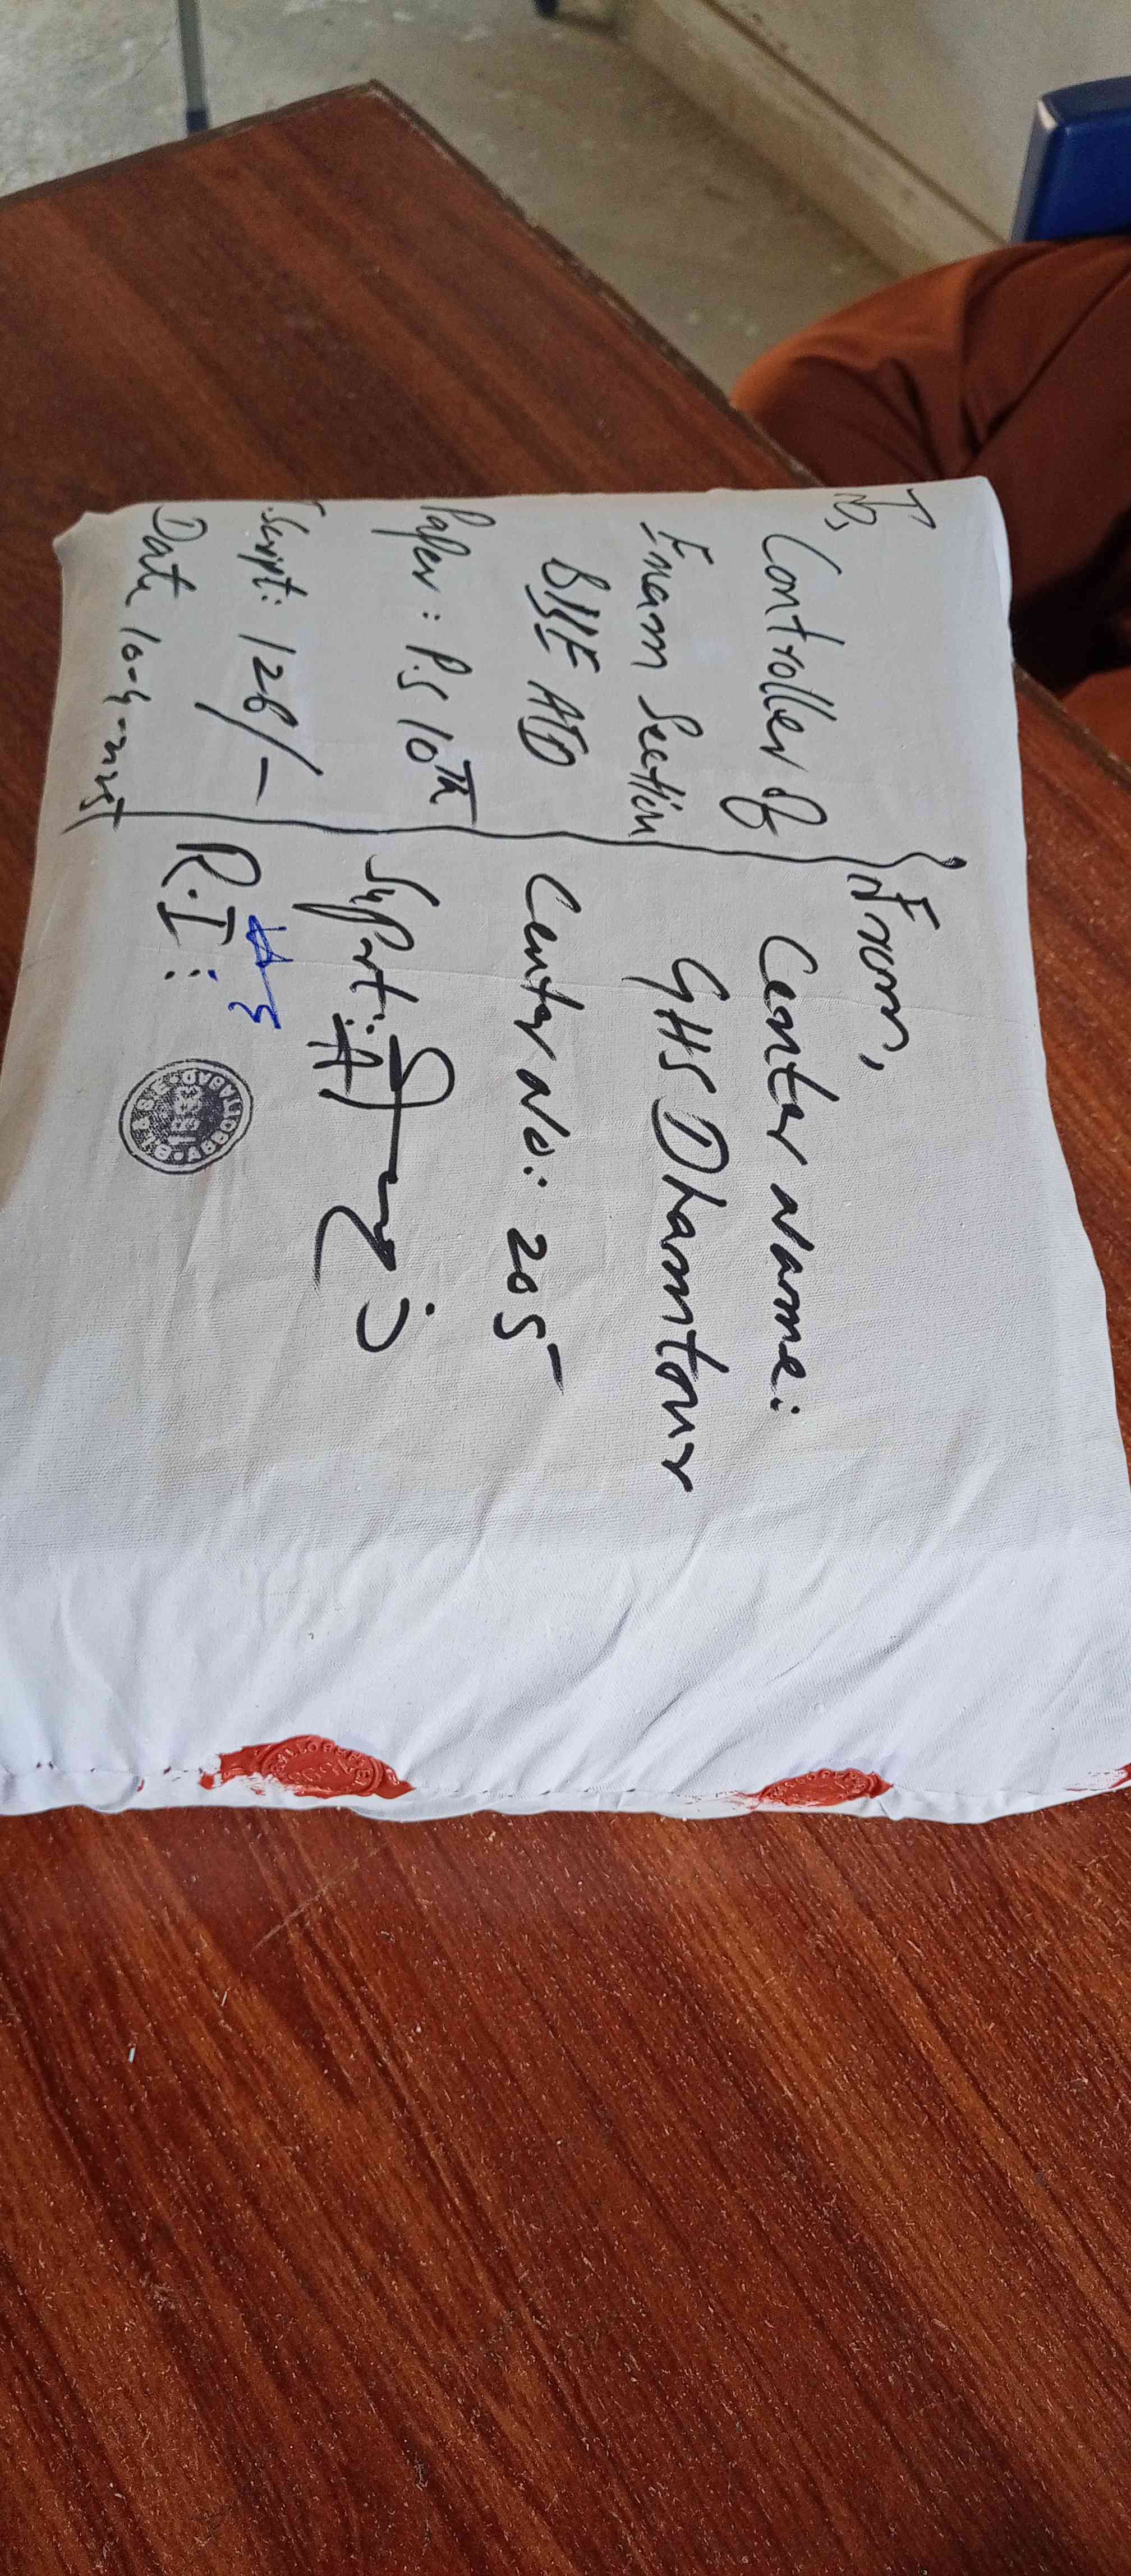 To,
Controller of
Exam Section
BISE ATD
Paper: P.S 10th
T.Script: 128/-
Date 10-4-2025
From,
Center Name:
GHS Dhamtour
Center No: 205
Supdt:
R.I: